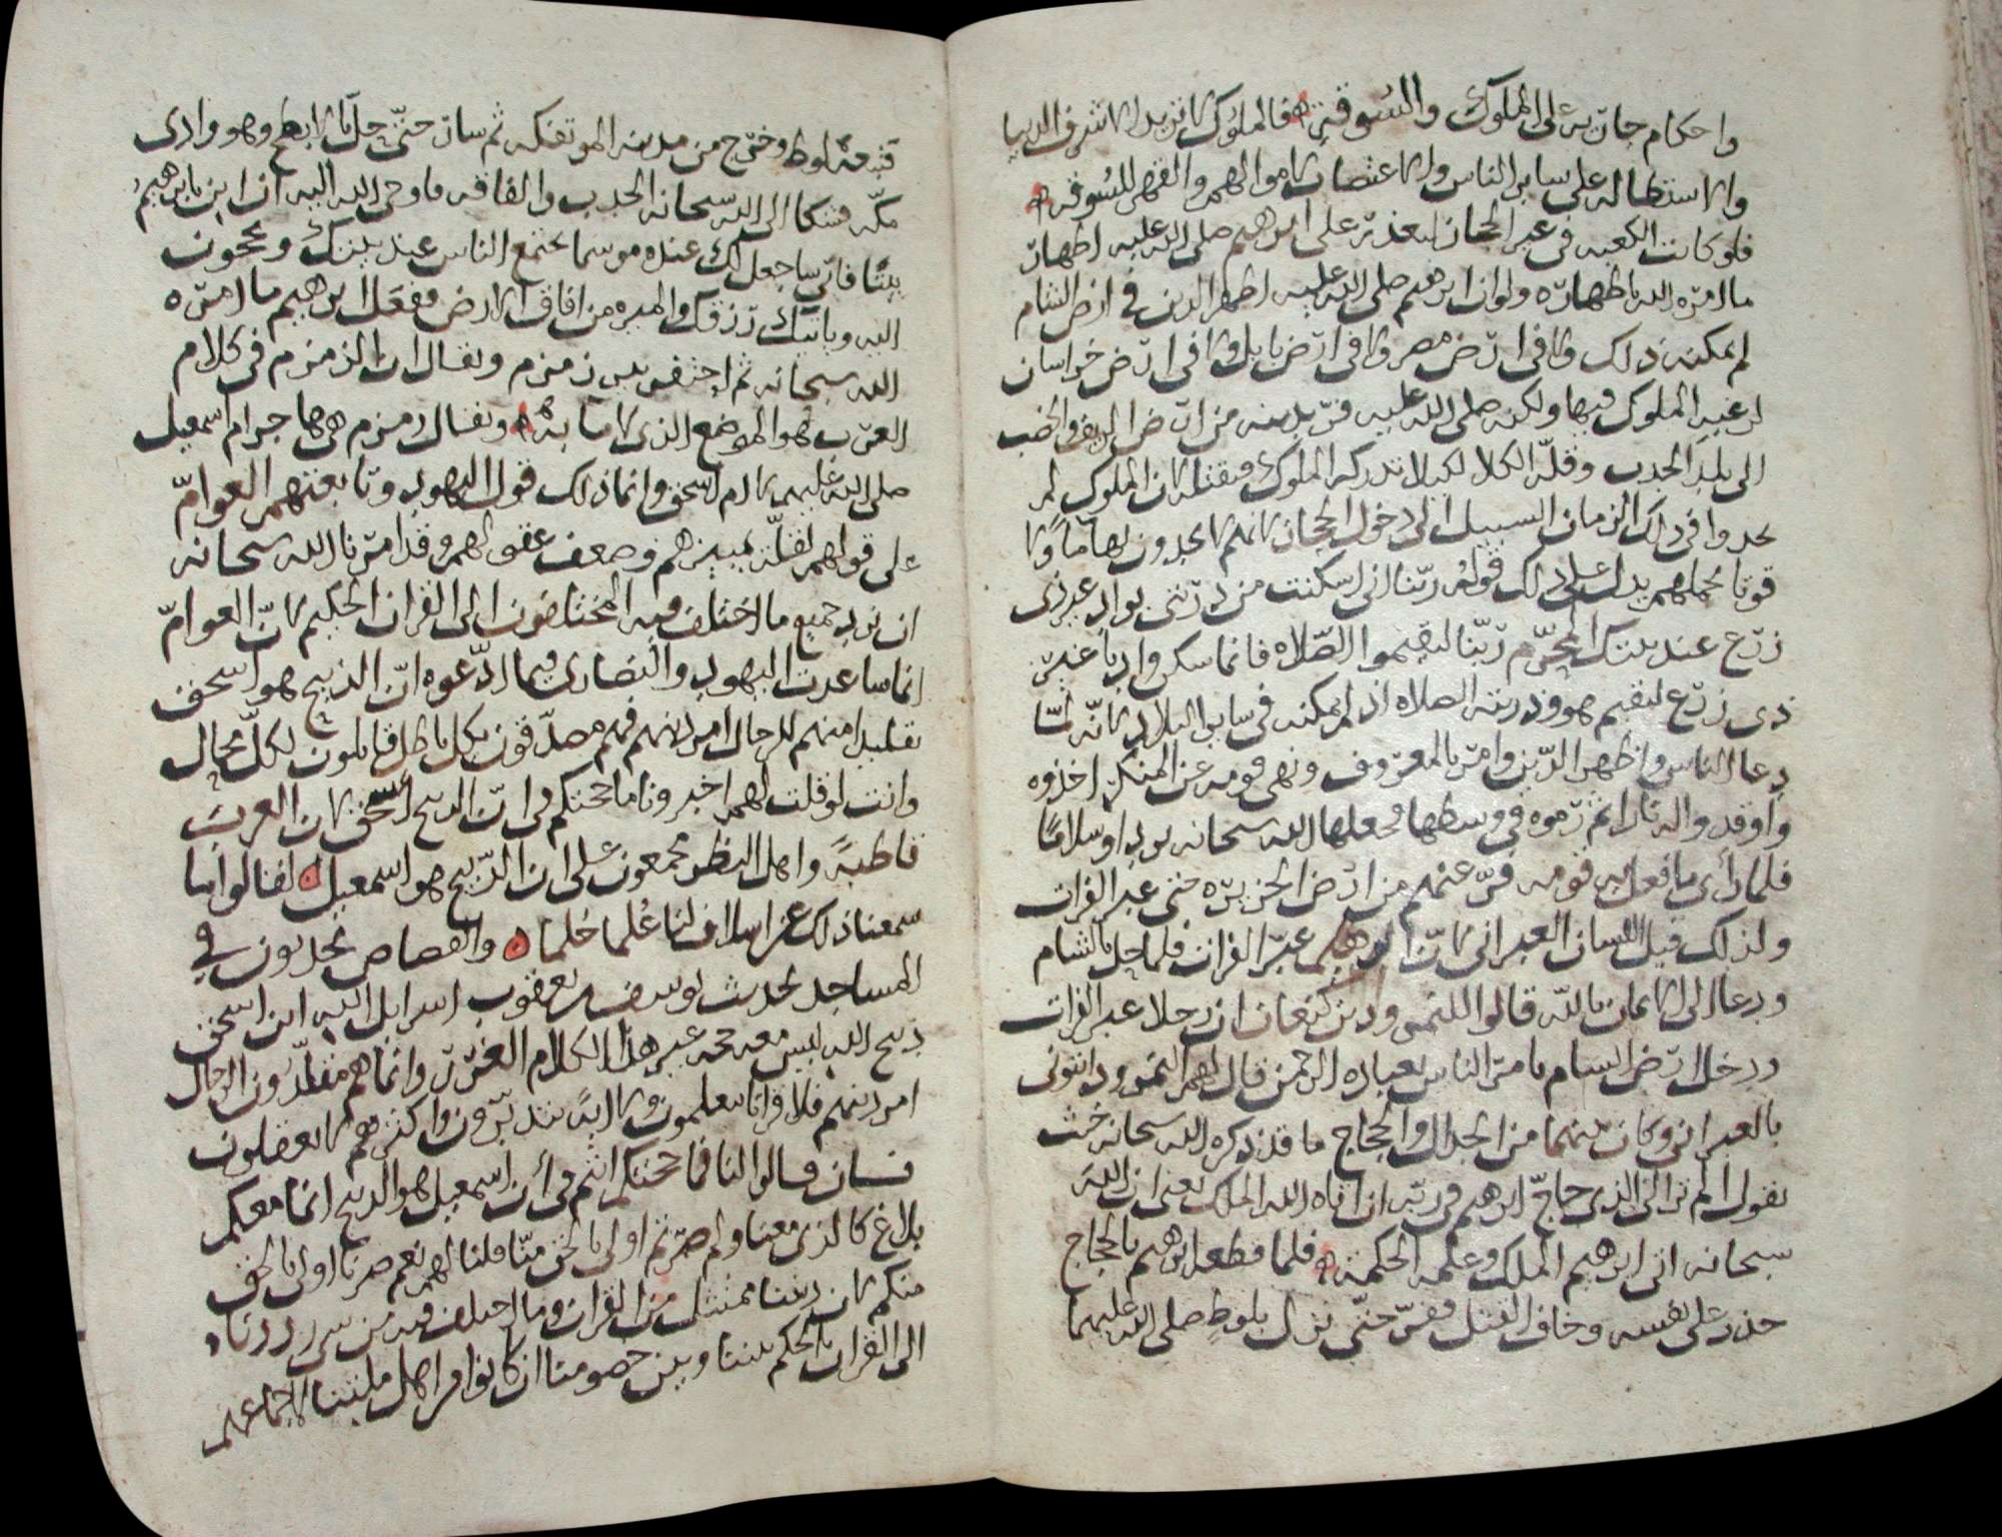 واحكام جاريه على الملوك والسوقة فالملوك لا تريد الا شرف الدنيا
والاستطاله على ساير الناس والاعتصاب لاموالهم والقهر للسوقه
فلو كانت الكعبه في غير الحجاز لتعذر على ابرهيم صلى الله عليه اظهار
ما امره الله باظهاره ولو ان ابرهيم صلى الله عليه اظهر الدين في ارض الشام
لم يمكنه ذلك ولا في ارض مصر ولا في ارض بابل ولا في ارض خراسان
لرغبه الملوك فيها ولكنه صلى الله عليه فر بدينه من ارض الريف والخصب
الى بلد الجدب وقلة الكلا لكيلا تدركه الملوك فتقتله لان الملوك لم
يجدوا في ذلك الزمان السبيل الى دخول الحجاز لانهم لا يجدون بها مآ ولا
قوتا يحملهم يدل على ذلك قوله ربنا اني اسكنت من ذريتي بواد غير ذي
زرع عند بيتك المحرم ربنا ليقيموا الصلاه فانما سكن واديا غير
ذي زرع ليقيم هو وذريته الصلاه اذ لم يمكنه في ساير البلاد لانه لما
دعا الناس واظهر الدين وامر بالمعروف ونهى قومه عن المنكر اخذوه
واوقدوا له نارا ثم رموه في وسطها فجعلها الله سبحانه بردا وسلاما
فلما رأى ما فعل به قومه فر عنهم من ارض الجزيره حتى عبر الفرات
ولذلك قيل اللسان العبراني لان ابرهيم عبر الفرات فلما حل بالشام
ودعا الى الايمان بالله قالوا للنمرود بن كنعان ان رجلا عبر الفرات
ودخل ارض الشام يامر الناس بعباده الرحمن قال لهم النمرود ايتوني
بالعبراني وكان بينهما من الجدال والحجاج ما قد ذكره الله سبحانه حيث
يقول الم تر الى الذي حاج ابرهيم في ربه ان اتاه الله الملك يعني ان الله
سبحانه اتى ابرهيم الملك وعلمه الحكمة فلما قطعه ابرهيم بالحجاج
حذر على نفسه وخاف القتل ففر حتى نزل بلوط صلى الله عليهما
لوط وخرج من مدينه الموتفكه ثم سار حتى حل بالابطح وهو وادي
مكه فشكا الى الله سبحانه الجدب والفاقه فاوحى الله اليه ان ابن يا برهيم
بيتا فاني ساجعل لك عنده موسما يجتمع الناس عند بيتك ويحجون
اليه وياتيك رزقك والميره من افاق الارض ففعل ابرهيم ما امره
الله سبحانه ثم احتفر بير زمزم ويقال ان الزمزم في كلام
العرب هو الموضع الذي لا ما به ويقال زمزم هي هاجر ام اسمعيل
صلى الله عليهم لا ام اسحق وانما ذلك قول اليهود وتابعتهم العوام
على قولهم لقلة تمييزهم وضعف عقولهم وقد امرنا الله سبحانه
ان نرد جميع ما اختلف فيه المختلفون الى القران الحكيم لان العوام
انما ساعدت اليهود والنصارى فيما ادعوه ان الذبيح هو اسحق
تقليدا منهم للرجال امر دينهم فهم مصدقون بكل باطل قايلون لكل محال
وانت لو قلت لهم اخبرونا ما حجتكم في ان الذبيح اسحق لان العرب
قاطبة واهل النظر مجمعون على ان الذبيح هو اسمعيل لقالوا انا
سمعنا ذلك عن اسلاف لنا علما حلما والقصاص يحدثون في
المساجد بحديث يوسف بن يعقوب اسرايل الله ابن اسحق
ذبيح الله ليس معه حجه غير هذا الكلام وانما هم مقلدون الرجال
امر دينهم فلا قرانا يعلمون ولا اية يتدبرون واكثرهم لا يعقلون
قالوا لنا فما حجتكم انتم في أن اسمعيل هو الذبيح انما معكم
بلاغ كالذي معنا ولم صرتم اولى بالحق منا قلنا لهم نعم صرنا اولى بالحق
منكم لان ديننا من القران وما اختلف فيه من شي رددناه
الى القران يالحكم بيننا وبين خصومنا ان كانوا من اهل ملتنا